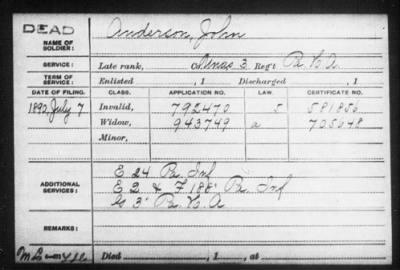 DEAD
NAME OF SOLDIER: Anderson, John
SERVICE: Late rank, Co. 3 Reg't Pa. H. A.
TERM OF SERVICE: Enlisted , 1 Discharged , 1
DATE OF FILING. CLASS. APPLICATION NO. LAW. CERTIFICATE NO.
1890, July 7 Invalid, 792470 5 581856
Widow, 943749 a 705648
Minor,
ADDITIONAL SERVICES: E 24 Pa. Inf
E 2 & F 188" Pa. Inf
G 3" Pa. H. A
REMARKS:
Died , 1 , at